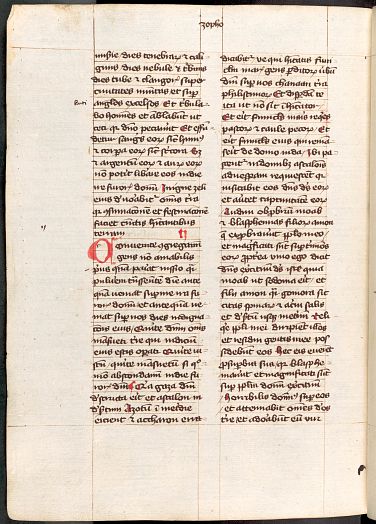 zopho
miserie dies tenebrar et cali
ginis dies nebule et turbinis
dies tube et clangor super
civitates munitas et super
anglos excelsos Et tribula
bo homines et ambulabut ut
ceci qr dno peccaverut Et effu
detur sanguis eor sicut humus
et corpa eor sicut stercora Sz
et argentu eor et auru eor
non poterit libare eos in die
ire furoris domini In igne zeli
eius devorabit omnis tra
qr consumacionem et festinacionem
faciet cunctis hitantibus
terram II
Convenite congregamini
gens non amabilis
prius qua pariat iussio quasi
pulverem transeunte diem ante
qua veniat super vos ira fu
roris domini et antequa ve
niat super vos dies indignacio
nis eius Querite dnm omnes
mansueti tre qui iudicium
eius estis operati Querite iu
stum querite mansuetum si quo
modo abscondamini in die fu
roris dni Quia gaza
destructa erit et ascalon in
desertum Azotum in meridie
eicient et accharon erra
dicabitur ve qui hitatis funi
culum maris gens perditorum verbum
dni super vos chanaan terra
philistinorum Et disperdam te
ita ut non sit inhitator
Et erit funiculus maris requies
pastorum et caule pecorum Et
erit funiculus eius qui reman
serit de domo iuda ibi pa
scentur in domibus ascalonis
ad vesperam requiescent quia
visitabit eos dns deus eorum
et avertet captivitatem eorum
Audivi obprobrium moab
et blasphemias filiorum amon
que exprobraverunt populo meo
et magnificati sunt super terminos
eorum propterea vivo ego dicit
dns exercituum deus israel quia moab
ut sedoma erit et
filii amon quasi gomorra sic
citas spinarum et acervi salis
et desertum usque in eternum Reli
quie populi mei diripient illos
et residui gentis mee pos
sidebunt eos Hoc eis eveniet
pro superbia sua quia blasphe
maverunt et magnificati sunt
super populum domini exercituum
horribilis dominus super eos
et attenuabit omnes deos
terre et adorabunt eum viri